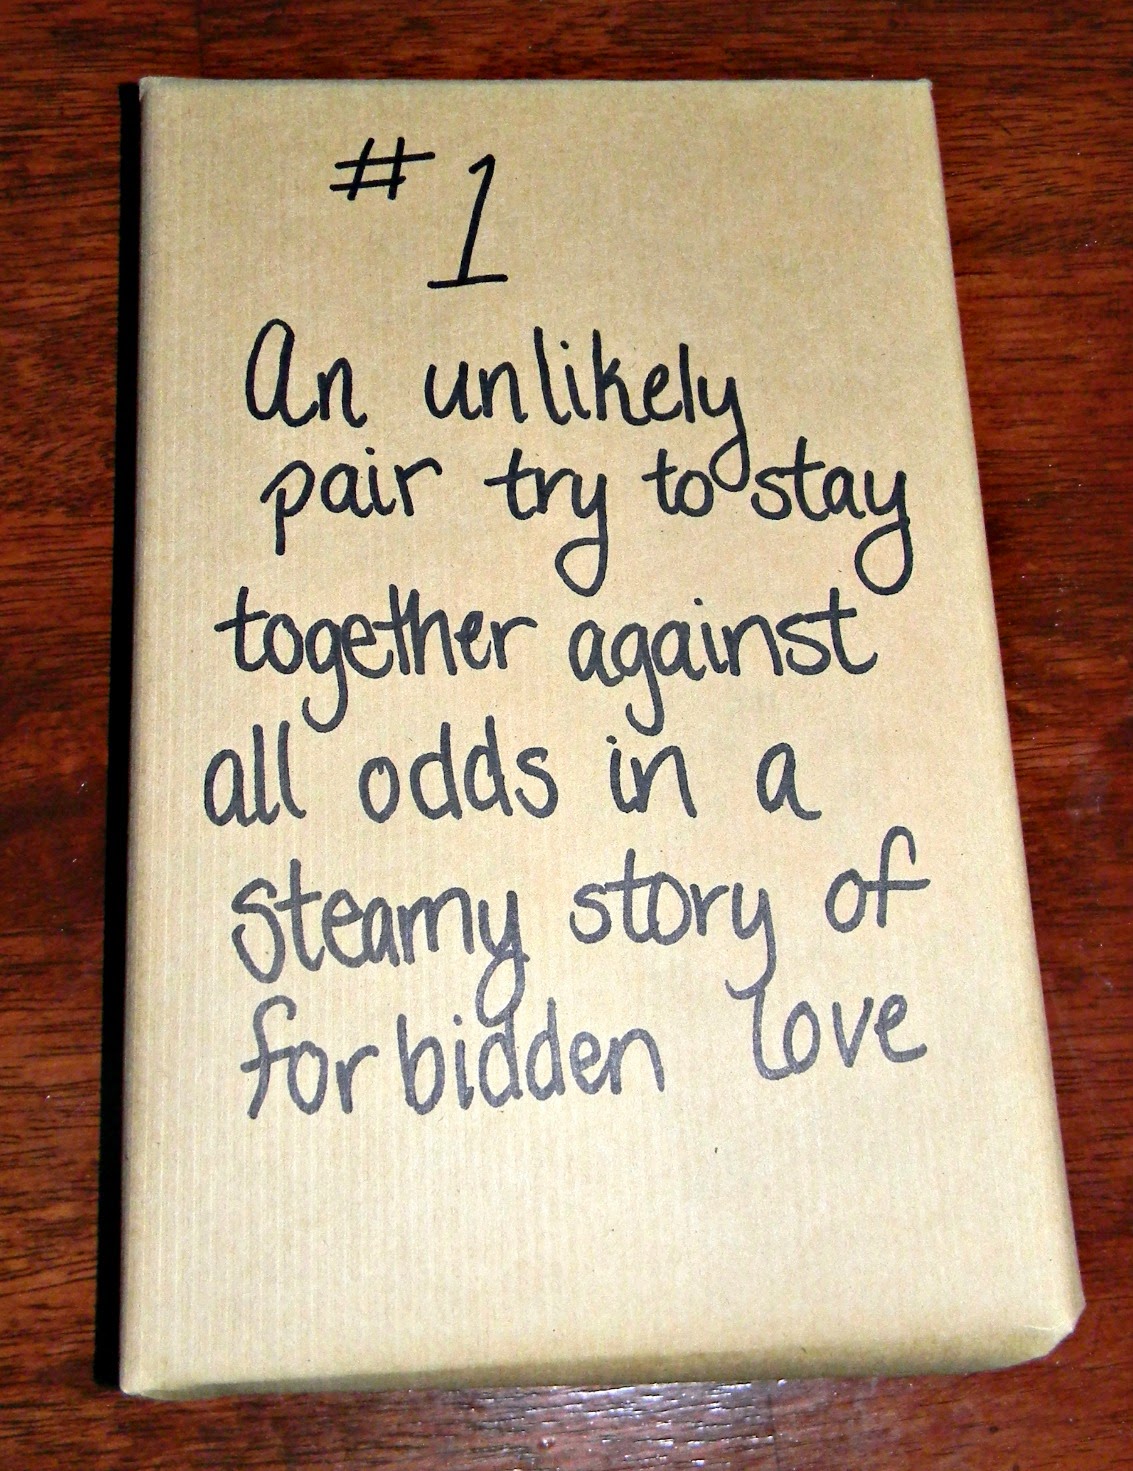 #1
An unlikely
pair try to stay
together against
all odds in a
steamy story of
forbidden love